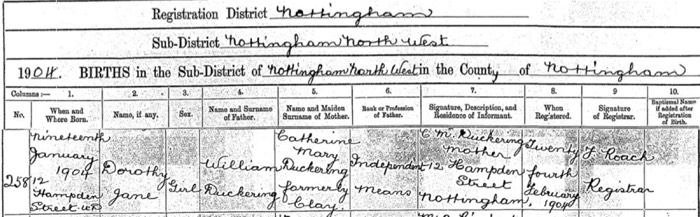 Registration District Nottingham
Sub-District Nottingham North West
1904. BIRTHS in the Sub-District of Nottingham North West in the County of Nottingham
Columns:— 1. 2. 3. 4. 5. 6. 7. 8. 9. 10.
No. When and Where Born. Name, if any. Sex. Name and Surname of Father. Name and Maiden Surname of Mother. Rank or Profession of Father. Signature, Description, and Residence of Informant. When Registered. Signature of Registrar. Baptismal Name if added after Registration of Birth.
258
Nineteenth
January
1904
12
Hampden
Street
Dorothy
Jane
Girl
William
Duckering
Catherine
Mary
Duckering
formerly
Clay
Independent
means
C. M. Duckering
mother
12 Hampden
Street
Nottingham
Twenty
fourth
February
1904
J. Roach
Registrar